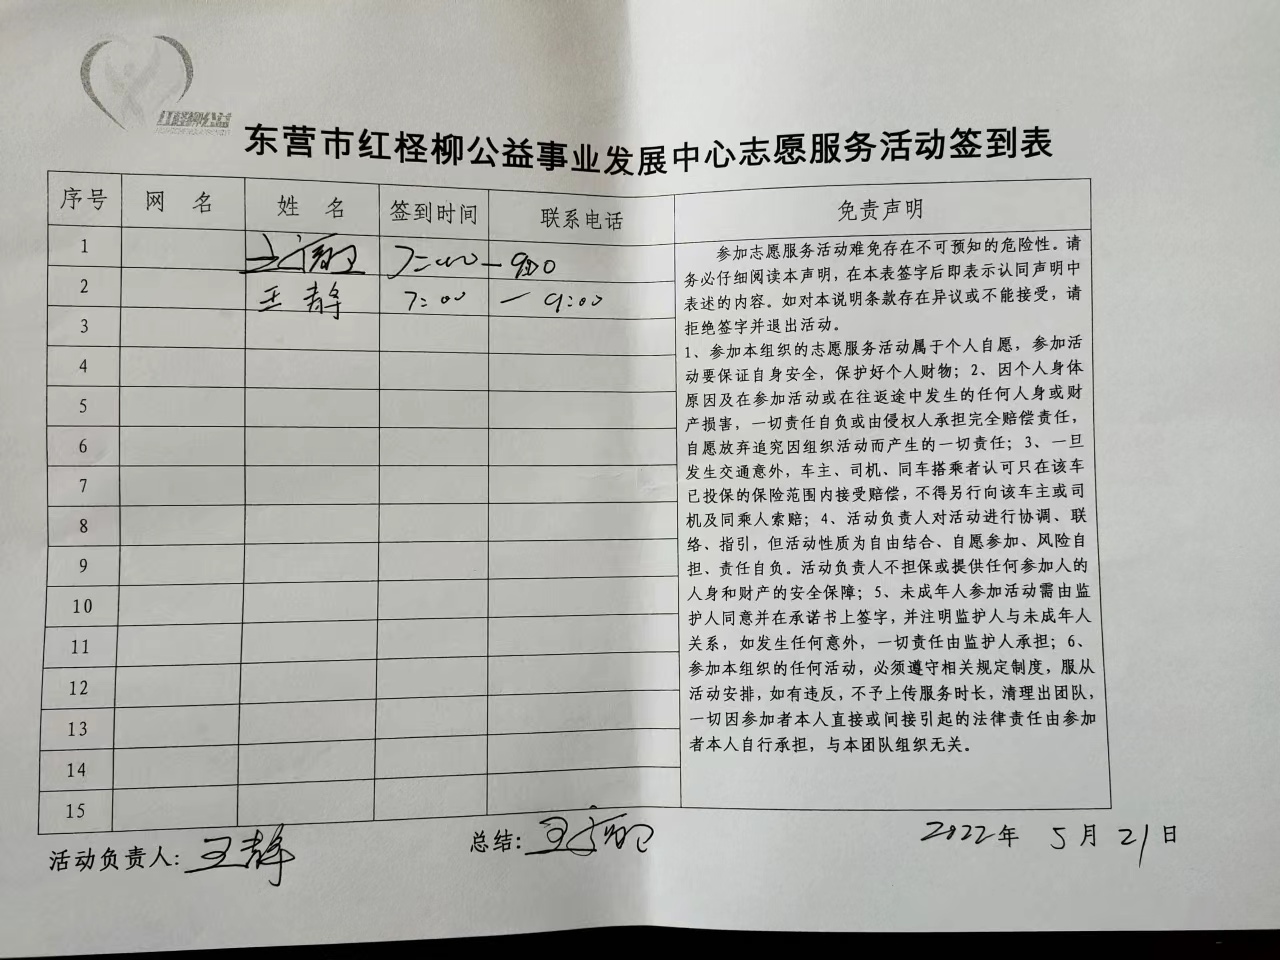 红柽柳公益
东营市红柽柳公益事业发展中心志愿服务活动签到表
序号 网 名 姓 名 签到时间 联系电话 免责声明
1 7:00 — 9:00
2 王静 7:00 — 9:00
3
4
5
6
7
8
9
10
11
12
13
14
15
参加志愿服务活动难免存在不可预知的危险性。请
务必仔细阅读本声明，在本表签字后即表示认同声明中
表述的内容。如对本说明条款存在异议或不能接受，请
拒绝签字并退出活动。
1、参加本组织的志愿服务活动属于个人自愿，参加活
动要保证自身安全，保护好个人财物；2、因个人身体
原因及在参加活动或在往返途中发生的任何人身或财
产损害，一切责任自负或由侵权人承担完全赔偿责任，
自愿放弃追究因组织活动而产生的一切责任；3、一旦
发生交通意外，车主、司机、同车搭乘者认可只在该车
已投保的保险范围内接受赔偿，不得另行向该车主或司
机及同乘人索赔；4、活动负责人对活动进行协调、联
络、指引，但活动性质为自由结合、自愿参加、风险自
担、责任自负。活动负责人不担保或提供任何参加人的
人身和财产的安全保障；5、未成年人参加活动需由监
护人同意并在承诺书上签字，并注明监护人与未成年人
关系，如发生任何意外，一切责任由监护人承担；6、
参加本组织的任何活动，必须遵守相关规定制度，服从
活动安排，如有违反，不予上传服务时长，清理出团队，
一切因参加者本人直接或间接引起的法律责任由参加
者本人自行承担，与本团队组织无关。
活动负责人：王静 总结： 2022年 5月 21日